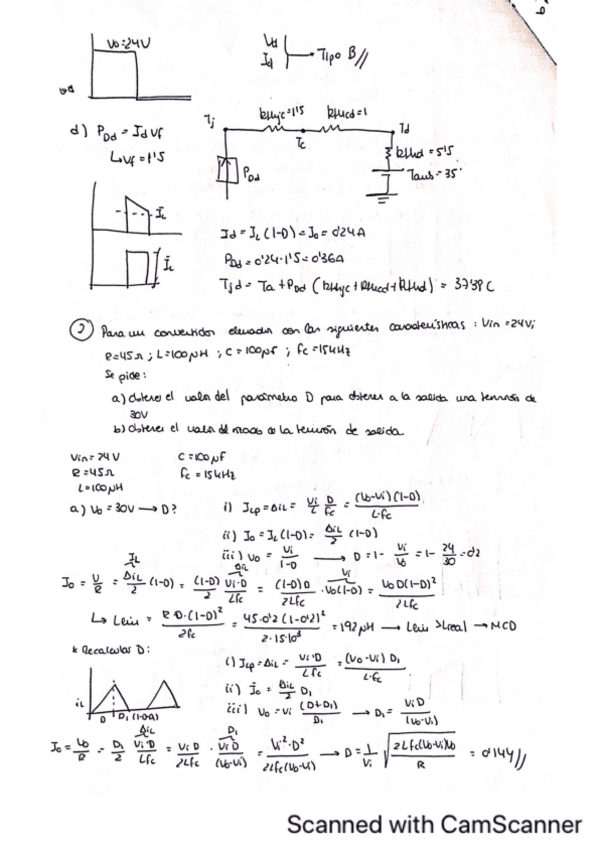 Vo=24V
Vd
Id
Tipo B//
d) PDd = Id Vf
Vf = 1'5
Tj
Rthjc=1'5
Rthcd=1
Tc
Td
PDd
Rthd = 5'5
Tamb = 35°
IL
Id = IL (1-D) = Io = 0'24A
PDd = 0'24·1'5 = 0'36A
Tjd = Ta + PDd (Rthjc + Rthcd + Rthd) = 37'88C
2) Para un convertidor elevador con las siguientes características: Vin = 24V;
R=45Ω; L=100μH; C=100μF; fc=15kHz
Se pide:
a) obtener el valor del parámetro D para obtener a la salida una tensión de
30V
b) obtener el valor del rizado de la tensión de salida.
Vin = 24V
C = 100μF
R = 45Ω
fc = 15kHz
L = 100μH
a) Vo = 30V → D?
i) ILp = ΔiL = Vi/L D/fc = (Vo-Vi)(1-D)/L·fc
ii) Io = IL(1-D) = ΔiL/2 (1-D)
iii) Vo = Vi/1-D → D = 1 - Vi/Vo = 1 - 24/30 = 0'2
Io = V/R = ΔiL/2 (1-D) = (1-D)/2 Vi·D/Lfc = (1-D)D/2Lfc · Vo(1-D) = Vo D(1-D)²/2Lfc
↳ Lcrit = R·D·(1-D)²/2fc = 45·0'2(1-0'2)²/2·15·10³ = 192μH → Lcrit > Lreal → MCD
* Recalcular D:
i) ILp = ΔiL = Vi·D/Lfc = (Vo-Vi) D₁/L·fc
ii) Io = ΔiL/2 D₁
iL
D D₁
iii) Vo = Vi (D+D₁)/D₁ → D₁ = ViD/(Vo-Vi)
Io = Vo/R = D₁/2 Vi·D/Lfc = Vi D/2Lfc · Vi D/(Vo-Vi) = Vi²·D²/2Lfc(Vo-Vi) → D = 1/Vi √2Lfc(Vo-Vi)Vo/R = 0'144//
Scanned with CamScanner